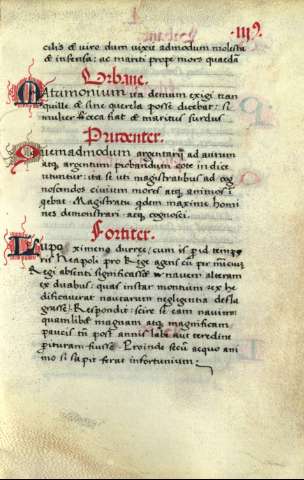 .119.
cilis & vire dum vixit admodum molesta
& infensa: ac mariti prope mors quaedā
Urbane.
Matrimonium ita demum exigi tran
quille & sine querela posse dicebat: si
mulier coeca fiat & maritus surdus.
Prudenter.
Quemadmodum argentarij ad aurum
atq; argentum probandum cote indice
utuntur: ita se uti magistratibus ad cog
noscendos civium mores atq; animos
Magistratu qdem maxime homi
nes demonstrari atq; cognosci.
Fortiter.
Lupo ximeno durreę cum is p id tempo
ris Neapoli pro Rege agens
Regi absenti significasset navem alteram
ex duabus: quas instar montium rex he
dificaverat nautarum negligentia defla
grasse: Respondit: scire se eam navim:
quamlibet magnam atq; magnificam
paucis tn post annis labe aut teredine
perituram fuisse. Proinde secū aequo ani
mo si sapit ferat infortunium: